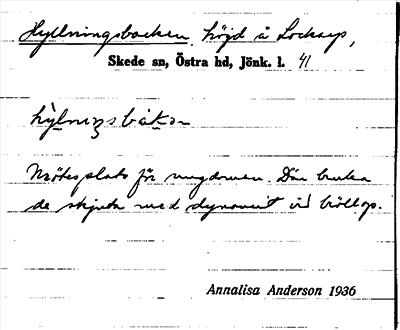 Hyllningsbacken, höjd å Lockarp,
Skede sn, Östra hd, Jönk. l. 41
hỳlnıŋsbàkən
Mötesplats för ungdomen. Där bruka
de skjuta med dynamit vid bröllop.
Annalisa Anderson 1936